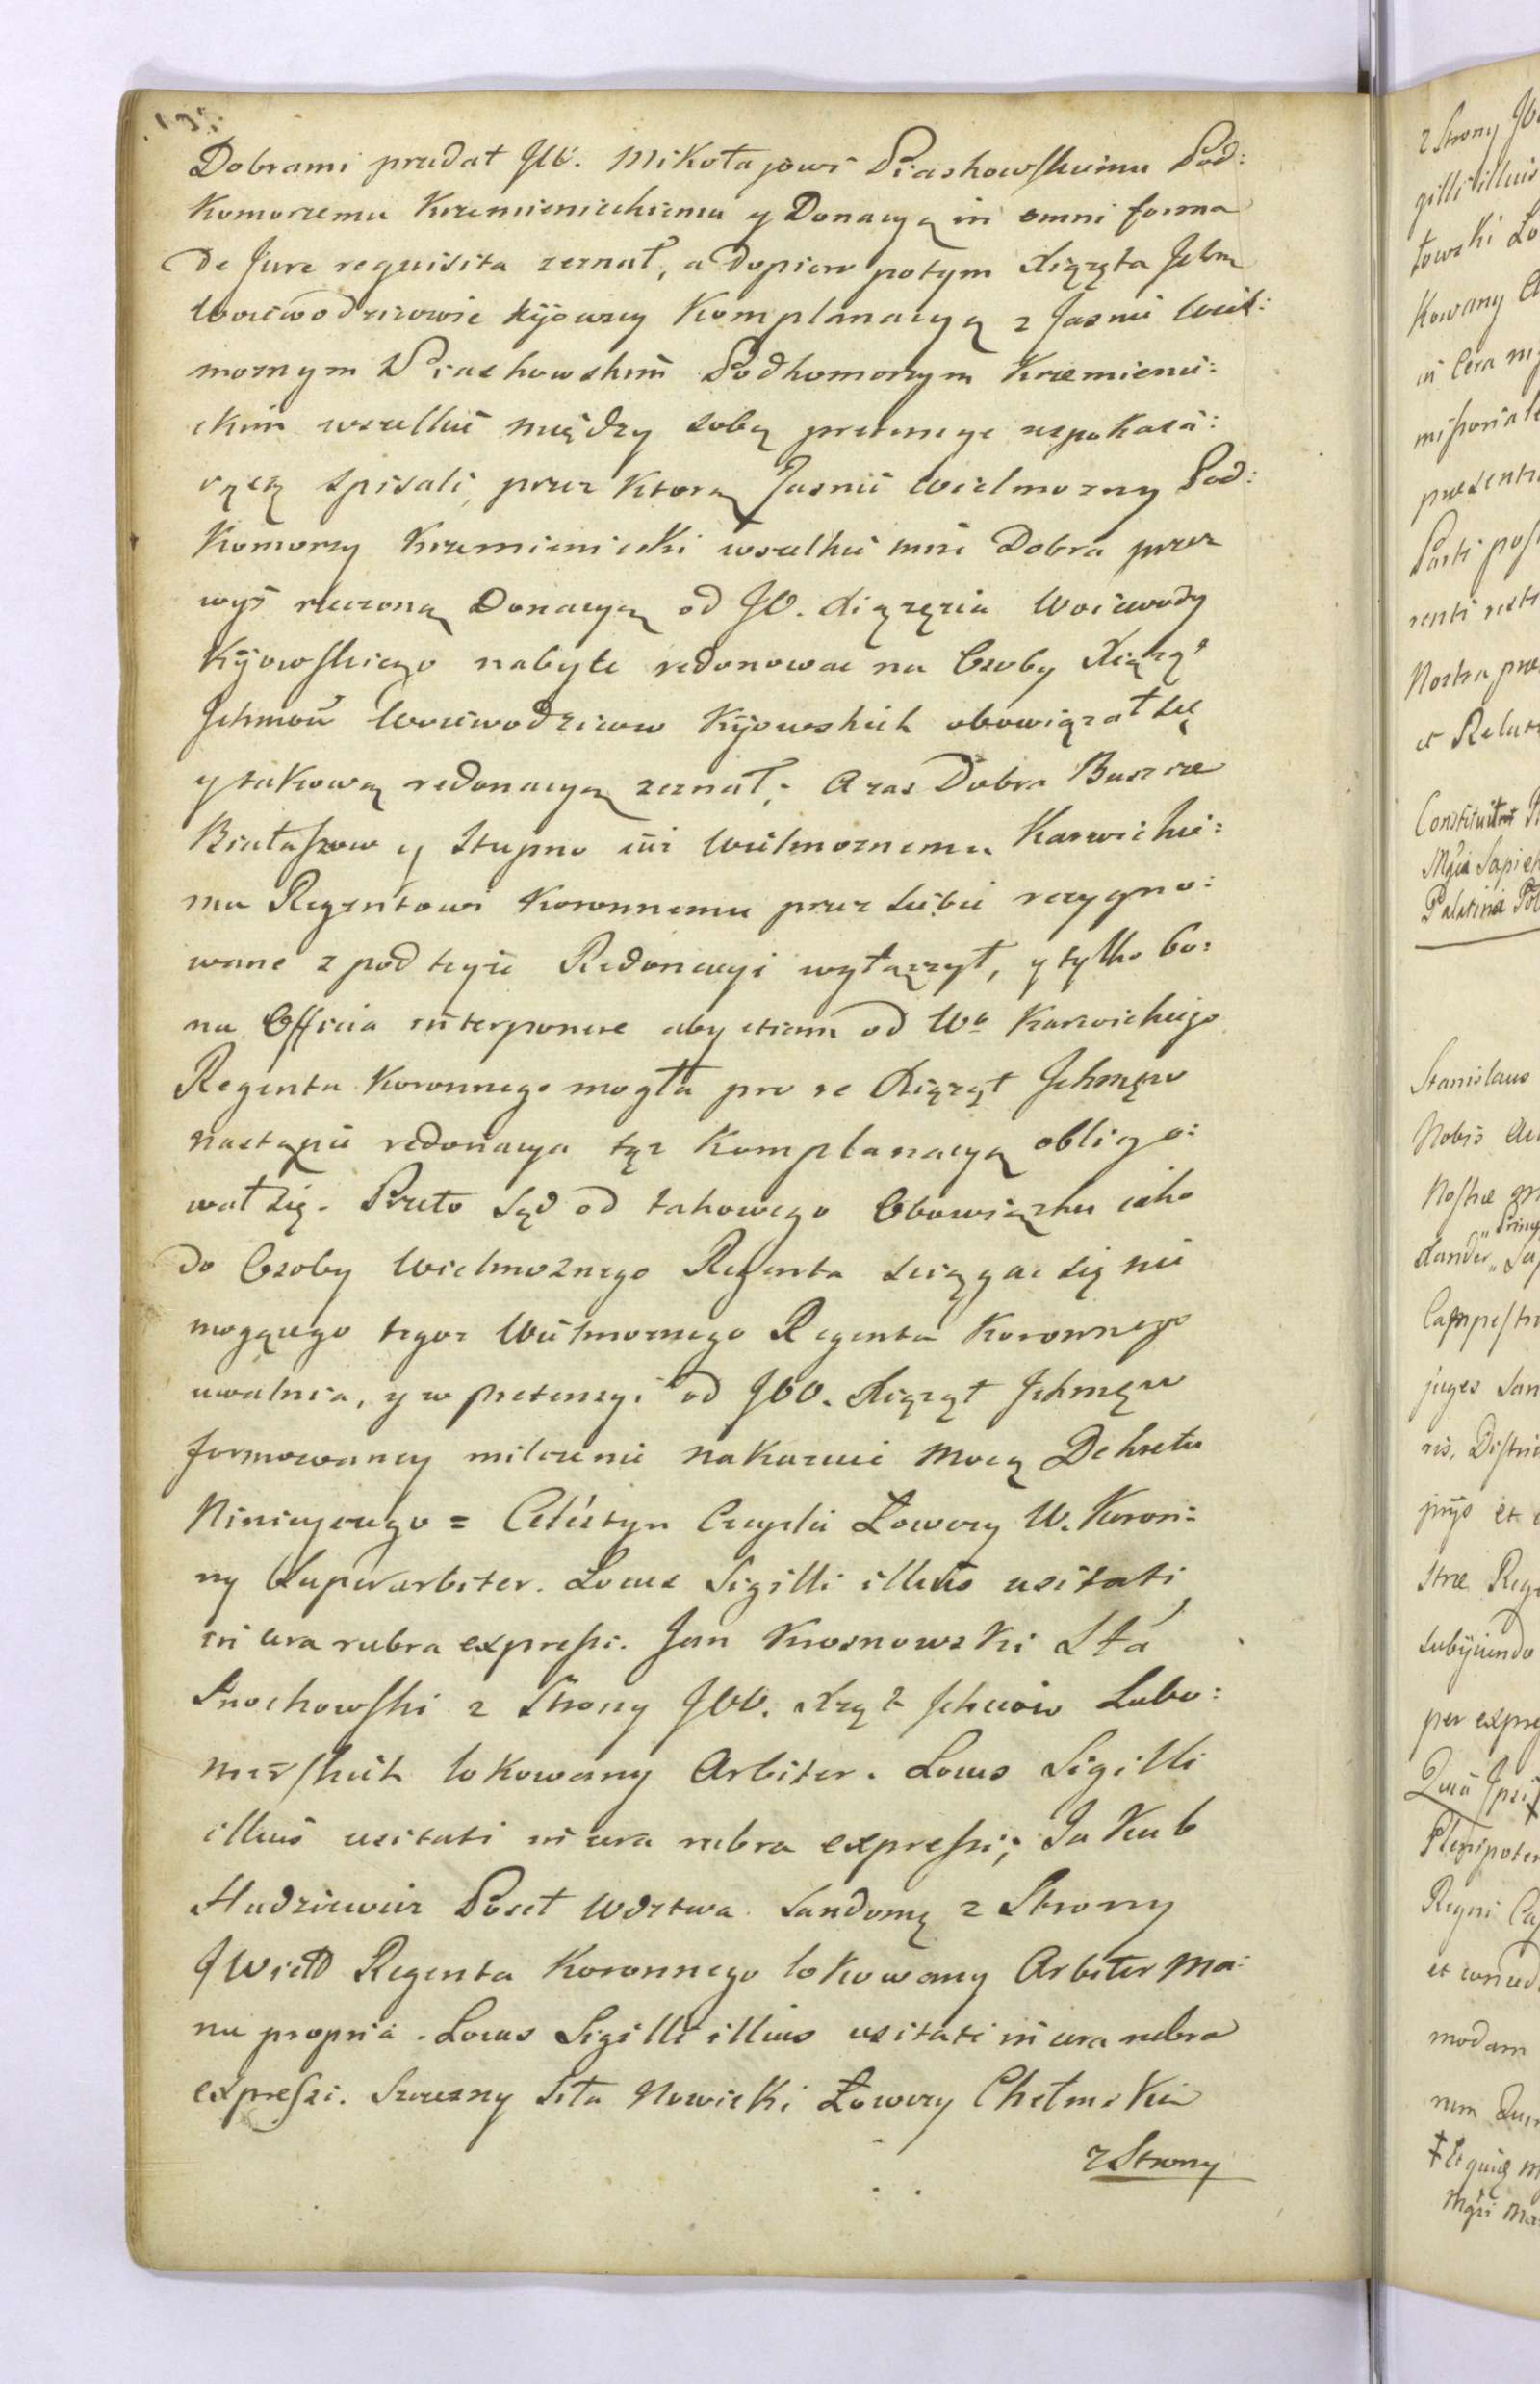 Dobrami przedał JW. Mikołajowi Piaskowskiemu Pod:
Komorzemu Krzemienieckiemu y Donacyą in omni forma
de Jure requisita zeznał, a dopiero potym Xiążęta Jchm
Woiewodzicowie Kijowscy Komplanacyą z Jasnie Wiel:
możnym Piaskowskim Podkomorzym Krzemieni:
ckim wszelkie między sobą pretensye uspokaia:
iącą spisali, przez ktorą Jasnie Wielmożny Pod:
Komorzy Krzemieniecki wszelkie inne Dobra przez
wyż rzeczoną Donacyą od JO. Xiążęcia Woiewody
Kijowskiego nabyte redonowac na Osoby Xiążą
Jchmow Woiewodzicow Kijowskich obowiązał się
y takową redonacyą zeznał; a zas Dobra Buszcze
Białaszow y Stupno iuż Wielmożnemu Karwickie:
mu Regentowi Koronnemu przez siebie rezygno:
wane z pod teyże Redonacyi wyłączył, y tylko Bo:
na Officia interponere aby etiam od Wo Karwickiego
Regenta Koronnego mogła pro se Xiążąt Jchmciow
nastąpic redonacya tąż Komplanacyą obligo:
wał się. Przeto Sąd od takowego Obowiązku iako
do Osoby Wielmożnego Regenta sciągac się nie
mogącego tegoż Wielmożnego Regenta Koronnego
uwalnia, y w pretensyi od JOO. Xiążąt Jchmciow
formowaney milczenie nakazuie mocą Dekretu
Ninieyszego = Celestyn Czaplic Łowczy W. Koron:
ny Superarbiter. Locus Sigilli illius usitati
in cera rubra expressi. Jan Krosnowski Sta
Prochowski z Strony JOO. Xżąt Jchmciow Lubo:
mirskich lokowany Arbiter. Locus Sigilli
illius usitati in cera rubra expressi; Jakub
Hadziewicz Poseł Wdztwa Sandom z Strony
JWielo Regenta Koronnego lokowany Arbiter Ma:
nu propria. Locus Sigilli illius usitati in cera rubra
expressi. Szczesny Sta Nowicki Łowczy Chełmski
z Strony
z Strony
sigilli illius
towski
Kowany
in Cera
presenti
Parti
Nostra
et Relat
Constituit
Mgia Sapieh
Palatina
Stanislaus
Nobis
Nostræ
Regni
et conced
modam